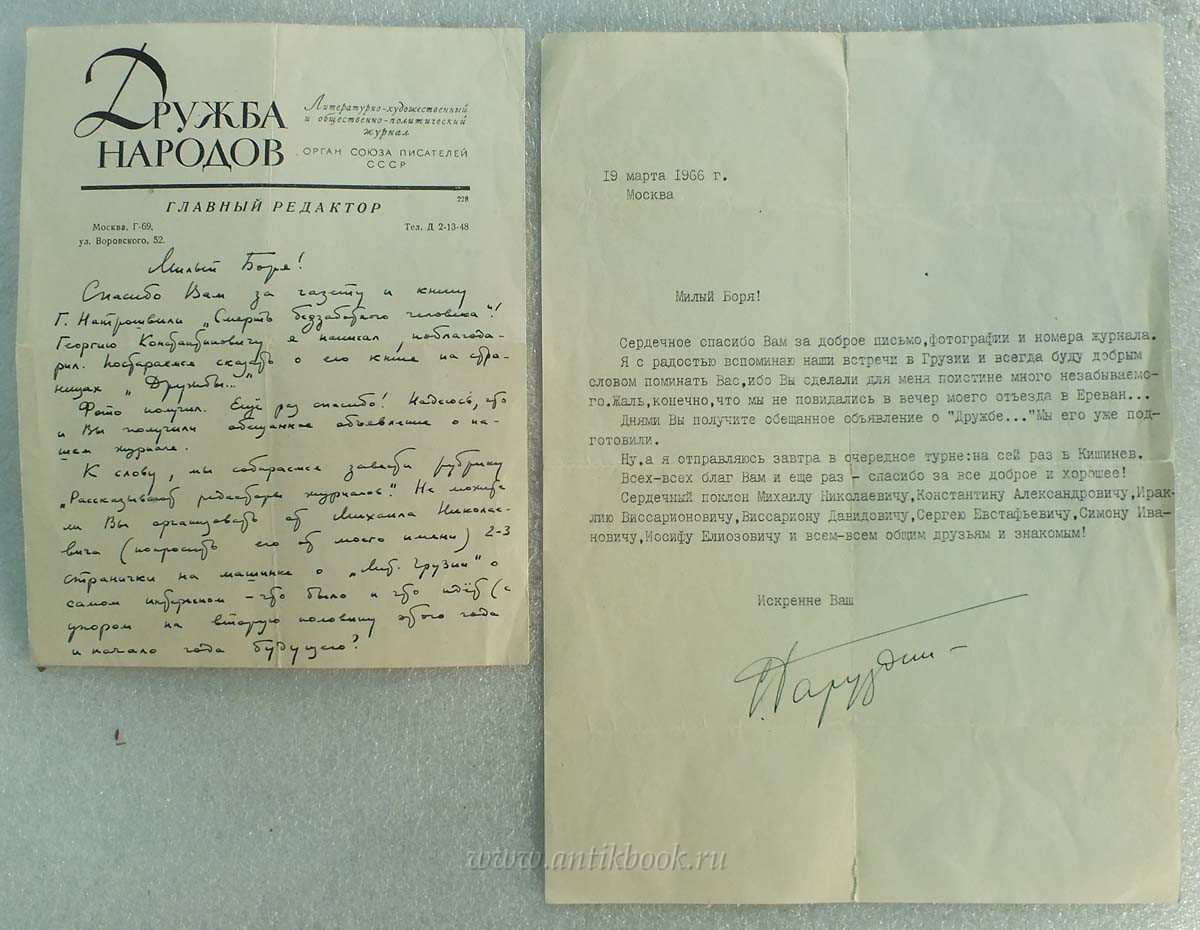 ДРУЖБА
НАРОДОВ
Литературно-художественный
и общественно-политический
журнал
ОРГАН СОЮЗА ПИСАТЕЛЕЙ
СССР
228
ГЛАВНЫЙ РЕДАКТОР
Москва, Г-69,
ул. Воровского, 52.
Тел. Д 2-13-48
Милый Боря!
Спасибо Вам за газету и книгу
Г. Натрошвили „Смерть беззаботного человека"!
Георгию Константиновичу я написал, поблагода-
рил. Постараемся сказать о его книге на стра-
ницах „Дружбы..."
Фото получил. Ещё раз спасибо! Надеюсь, что
и Вы получили обещанное объявление о на-
шем журнале.
К слову, мы собираемся завести рубрику
„Рассказывают редакторы журналов". Не можете
ли Вы организовать от Михаила Николае-
вича (попросить его от моего имени) 2-3
странички на машинке о „Лит. Грузии" о
самом интересном – что было и что идёт (с
упором на вторую половину этого года
и начало года будущего?
19 марта 1966 г.
Москва
Милый Боря!
Сердечное спасибо Вам за доброе письмо,фотографии и номера журнала.
Я с радостью вспоминаю наши встречи в Грузии и всегда буду добрым
словом поминать Вас,ибо Вы сделали для меня поистине много незабываемо-
го.Жаль,конечно,что мы не повидались в вечер моего отъезда в Ереван...
Днями Вы получите обещанное объявление о "Дружбе..."Мы его уже под-
готовили.
Ну,а я отправляюсь завтра в очередное турне:на сей раз в Кишинев.
Всех-всех благ Вам и еще раз - спасибо за все доброе и хорошее!
Сердечный поклон Михаилу Николаевичу,Константину Александровичу,Ирак-
лию Виссарионовичу,Виссариону Давидовичу,Сергею Евстафьевичу,Симону Ива-
новичу,Иосифу Елиозовичу и всем-всем общим друзьям и знакомым!
Искренне Ваш
С.Баруздин
www.antikbook.ru